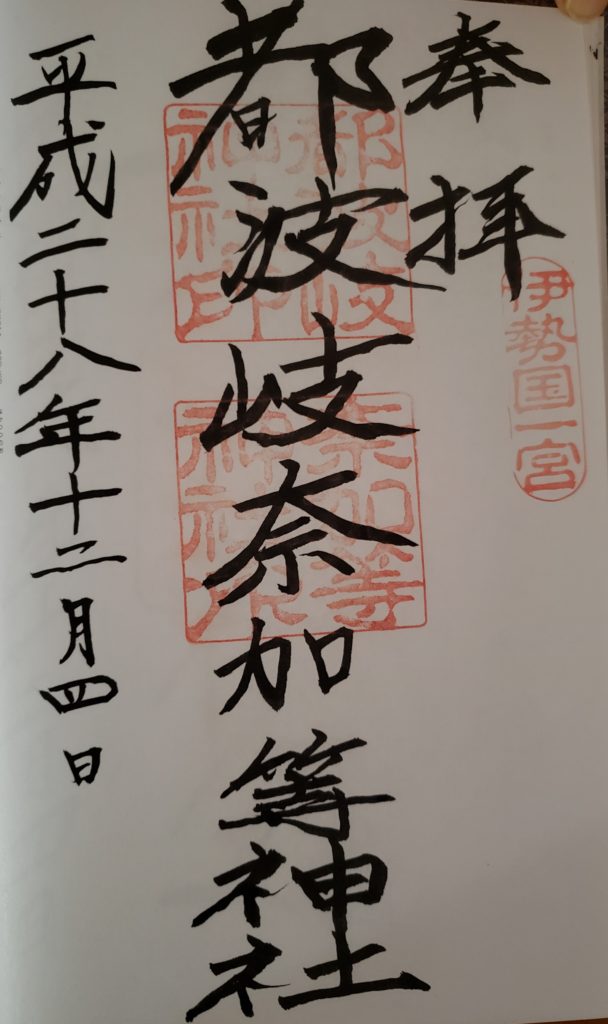 奉拝
伊勢国一宮
都波岐奈加等神社
都波岐
神社印
奈加等
神社印
平成二十八年十二月四日